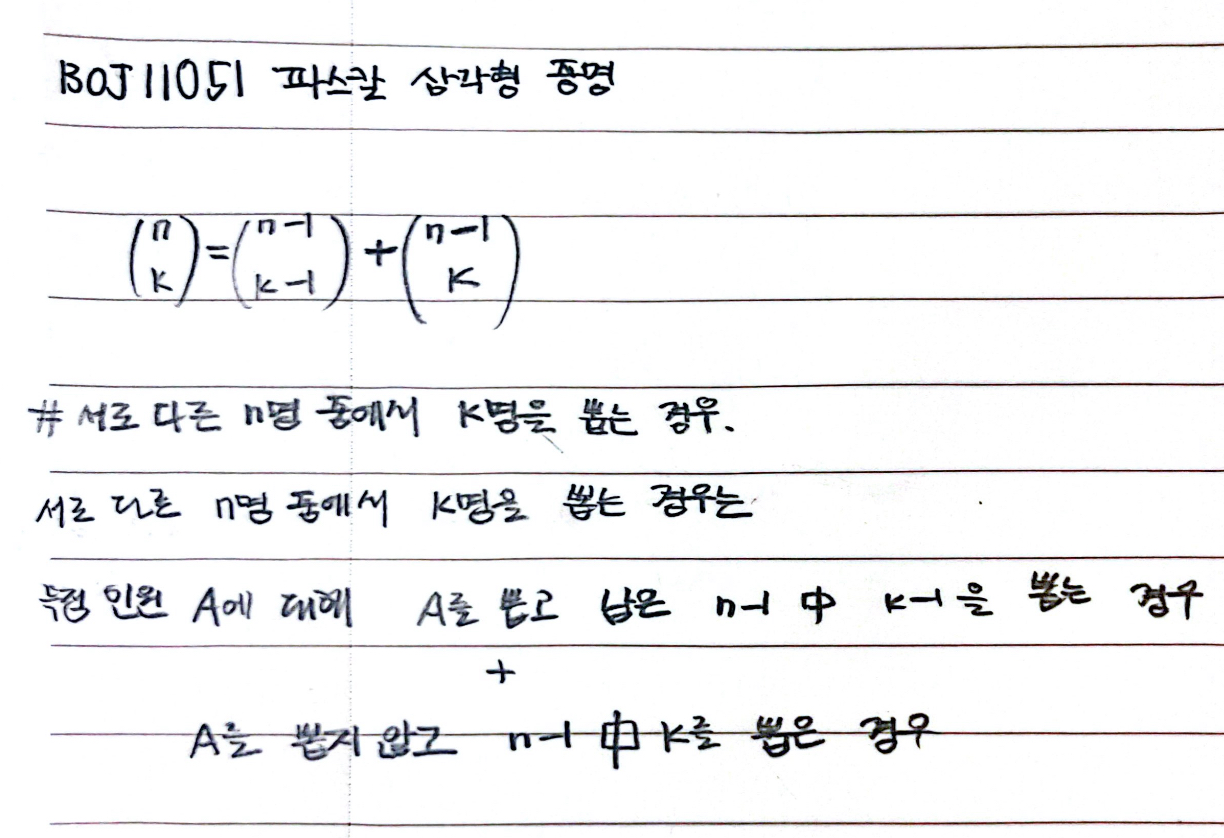 BOJ 11051 파스칼 삼각형 증명
(n k) = (n-1 k-1) + (n-1 k)
# 서로 다른 n명 중에서 k명을 뽑는 경우.
서로 다른 n명 중에서 k명을 뽑는 경우는
특정 인원 A에 대해 A를 뽑고 남은 n-1 中 k-1을 뽑는 경우
+
A를 뽑지 않고 n-1 中 k를 뽑은 경우